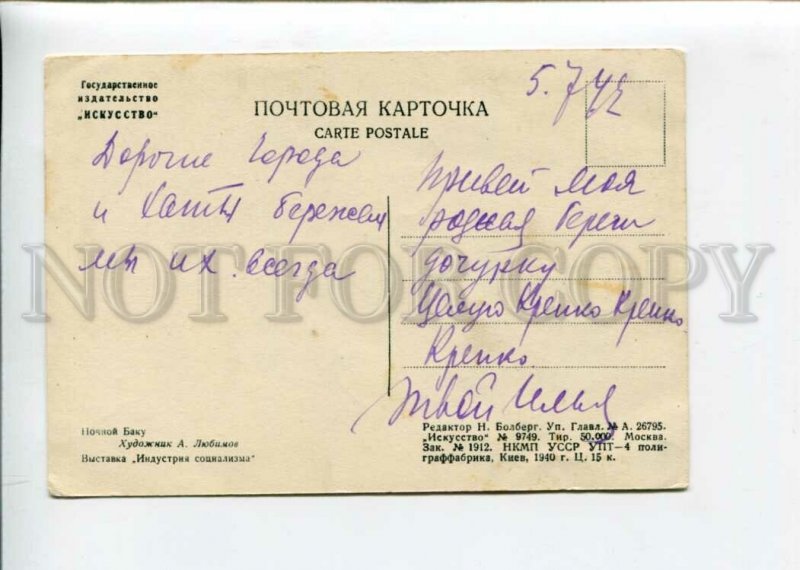 Государственное
издательство
„ИСКУССТВО"
ПОЧТОВАЯ КАРТОЧКА
CARTE POSTALE
5.7 42
Дорогие города
и Хаты бережем
мы их всегда
Привет моя
родная береги
дочурку
Целую Крепко Крепко
Крепко
твой Илья
NOT FOR COPY
Ночной Баку
Художник А. Любимов
Выставка „Индустрия социализма"
Редактор Н. Болберг. Уп. Главл. № А. 26795.
"Искусство" № 9749. Тир. 50.000. Москва.
Зак. № 1912. НКМП УССР УПТ—4 поли-
граффабрика, Киев, 1940 г. Ц. 15 к.